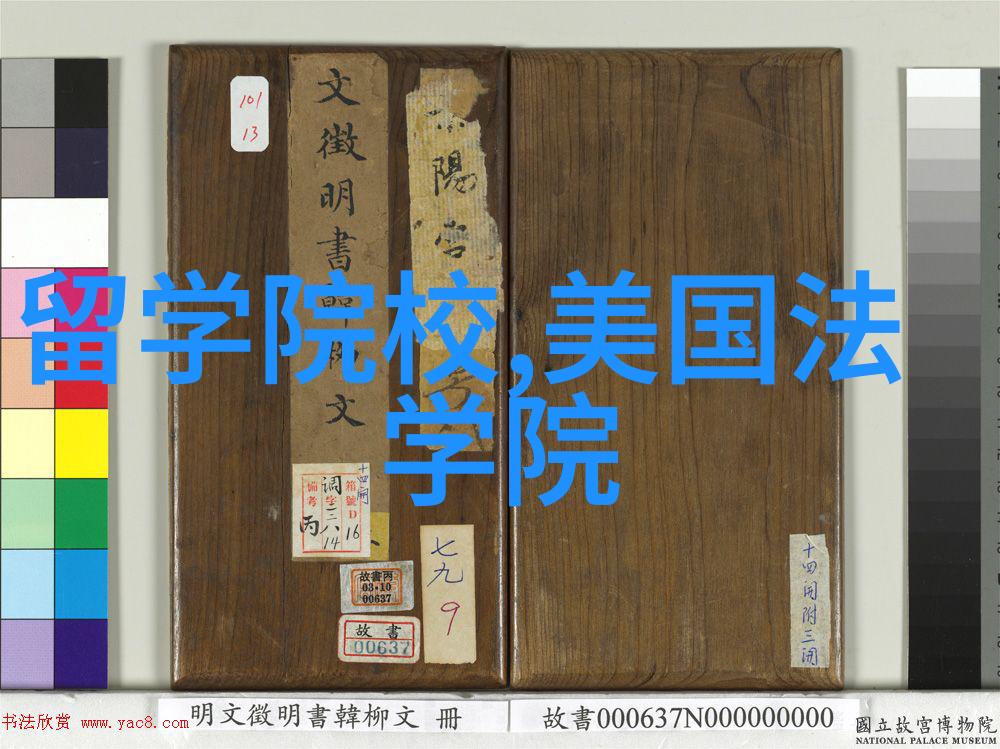 留学院校,美国法
学院
101
13
文徵明書韓柳文
陽宮
十四開
箱號D16
调字三八14
備考
丙
七九
9
故書丙
03·10
00637
故書
00637
十四開附三開
書法欣賞 www.yac8.com
明文徵明書韓柳文 冊
故書000637N000000000
國立故宮博物院
NATIONAL PALACE MUSEUM